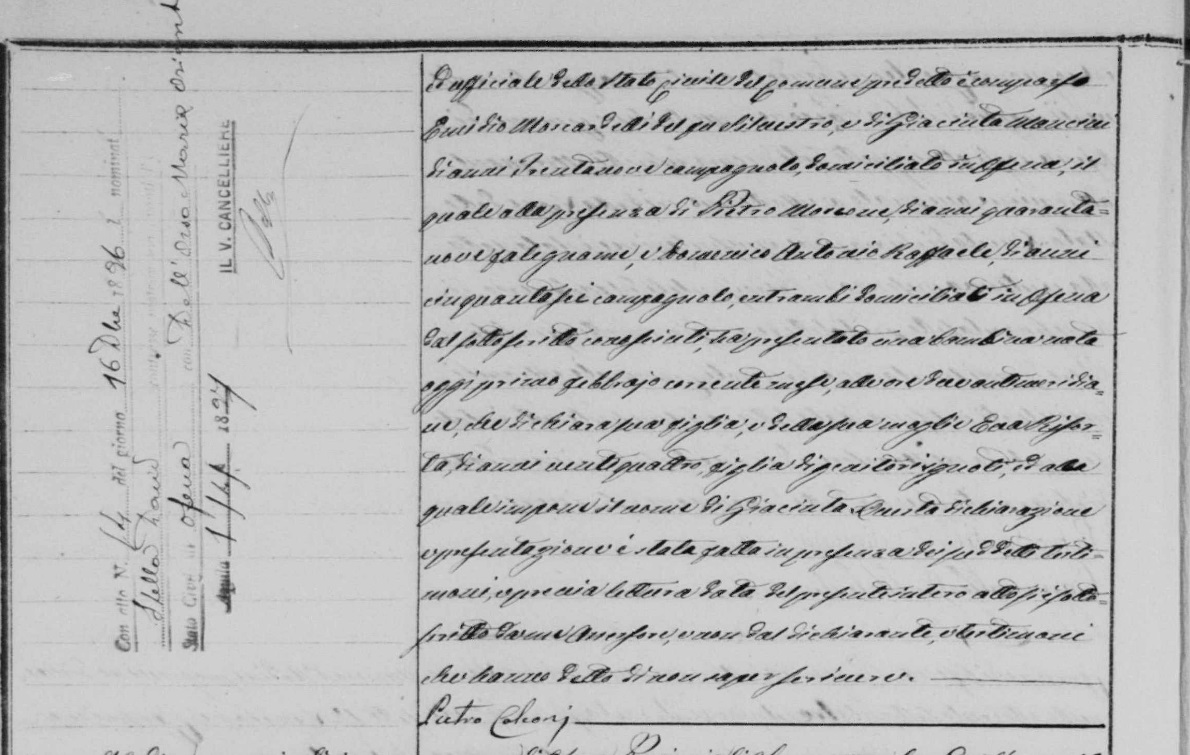 Con atto N. 14 del giorno 16 Dbre 1896 i nominati
con Dell'Orso Maria
Stato Civ. di Ofena
Aquila 1897
IL V. CANCELLIERE
ed ufficiale dello Stato Civile del Comune predetto è comparso
Emidio Moscardelli del fu Silvestro, e di Giacinta Mancini
di anni trentanove campagnolo, domiciliato in Ofena, il
quale alla presenza di Pietro Morrone, di anni quaranta=
nove falegname, e Domenico Antonio Raffaele, di anni
cinquantasei campagnolo, entrambi domiciliati in Ofena
dal sottoscritto conosciuti, ha presentato una bambina nata
oggi primo febbrajo corrente mese, alle ore due antimeridia=
ne, che dichiara sua figlia, e della sua moglie Eva Rifor=
ta, di anni ventiquattro, figlia di genitori ignoti, ed alla
quale impone il nome di Giacinta. Questa dichiarazione
e presentazione è stata fatta in presenza dei suddetti testi=
moni, e previa lettura data del presente intero atto si è sotto=
scritto da me Assessore, e non dal dichiarante, e testimoni
che hanno detto di non saper scrivere.
Pietro